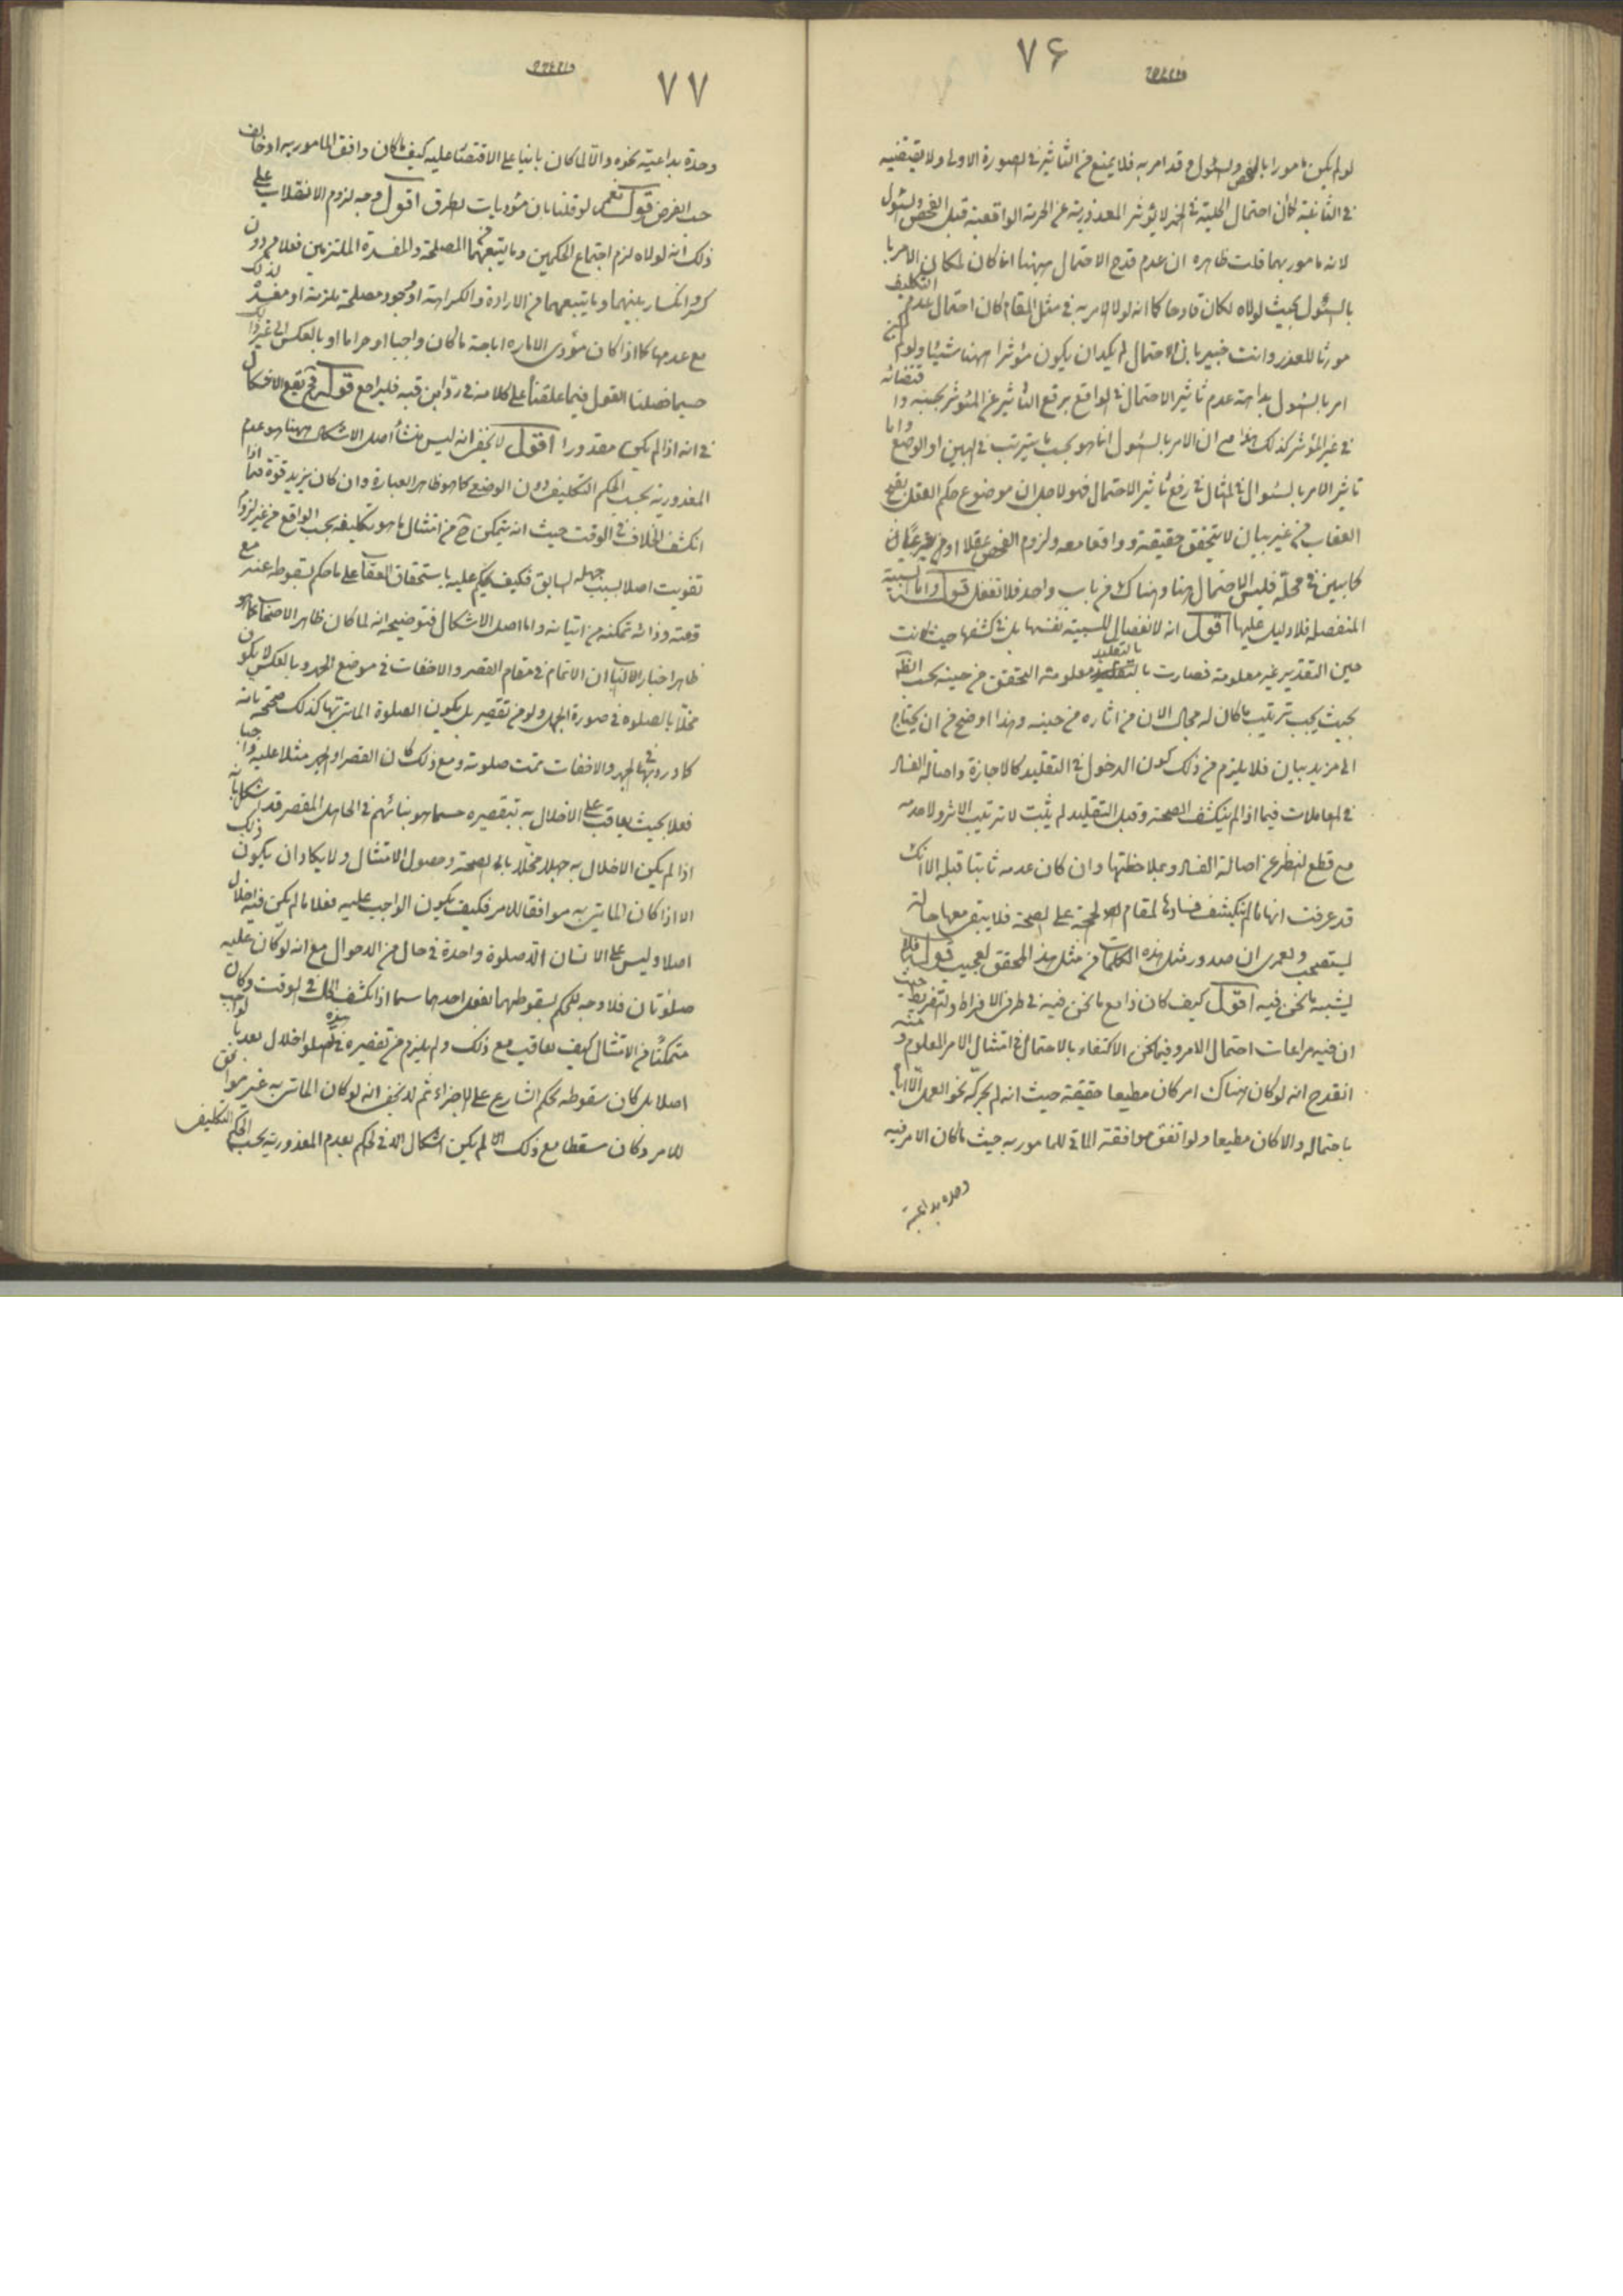 ٧۶
لو لم يكن مامورا بالفحص والسئول وقد امر به فلا يمنع من التاثير فى الصورة الاولى ولا يقتضيه
فى الثانية كان احتمال الحلية فى الخمر لا يؤثر المعذورية عن الحرمة الواقعية قبل الفحص والسئول
لانه مامور بهما قلت ظاهره ان عدم قدح الاحتمال ههنا انما كان لمكان الامر با
بالسئول بحيث لولاه لكان قادحا كما انه لولا الامر به فى مثل المقام كان احتمال عدم التكليف
مورثا للعذر وانت خبير بان الاحتمال لم يكد ان يكون مؤثرا ههنا شيئا ولو لم يكن
امر بالسئول بداهة عدم تاثير الاحتمال فى الواقع برفع التأثير عن المؤثر بجنبه واقتضائه
فى غير المؤثر كذلك هذا مع ان الامر بالسئول انما هو بحسب ما يترتب فى البين او الوضع واما
تاثير الامر بالسئوال فى المثال فى رفع تاثير الاحتمال فهو لاجل ان موضوع حكم العقل بقبح
العقاب من غير بيان لا يتحقق حقيقة وواقعا معه ولزوم الفحص عقلا او من غير
كما بين فى محله فليس الاحتمال هنا وهناك من باب واحد فلا تغفل قوله واما السببية
المنفصله فلا دليل عليها اقول انه لا انفصال للسببية نفسها بل فى كشفها حيث كانت
حين التقدير غير معلومة فصارت بالتقليد معلومة التحقق من حينه بحسب الظ
بحيث يجب ترتيب ما كان له مجال الان من اثاره من حينه وهذا اوضح من ان يحتاج
الى مزيد بيان فلا يلزم من ذلك كون الدخول فى التقليد كالاجازة واصالة الفساد
فى المعاملات فيما اذا لم ينكشف الصحة وقبل التقليد لم يثبت لا ترتيب الاثر ولا عدمه
مع قطع النظر عن اصالة الفساد وبملاحظتها وان كان عدمه ثابتا قبله الا انك
قد عرفت انها ما لم ينكشف فسادها لمقام الحجة على الصحة فلا يبقى معها حالة
ليستصحب ولعمرى ان صدور مثل هذه الكلمات من مثل هذا المحقق لعجيب قوله فلا
يشبه ما نحن فيه اقول كيف كان ذا مع ما نحن فيه فى طرفى الافراط والتفريط حيث
ان فيه مراعات احتمال الامر وفيما نحن الاكتفاء بالاحتمال فى امتثال الامر المعلوم ومنه
انقدح انه لو كان هناك امر كان مطيعا حقيقة حيث انه لم يحركه نحو العمل الا
باحتماله والا كان مطيعا ولو اتفق موافقة الماتى للمامور به حيث ما كان الامر فيه
وحده بداعية
٧٧
وحدة بداعيته نحوه والا لما كان بانيا على الاقتصار عليه كيف ما كان وافق المامور به او خالف
حسب الفرض قوله نعم لو قلنا بان مئوديات الطرق اقول وجه لزوم الانقلاب على
ذلك انه لولاه لزم اجتماع الحكمين وما يتبعهما من المصلحة والمفسدة الملتزمين فعلا من دون
كسر وانكسار بينهما وما يتبعهما من الارادة والكراهة او وجود مصلحة ملزمة او مفسدة كذلك
مع عدمها كما اذا كان مؤدى الاماره اباحة ما كان واجبا او حراما او بالعكس الى غير ذلك
حسبما فصلنا القول فيما علقنا على كلامه فى رد ابن قبه فليراجع قوله فح يقع الاشكال
فى انه اذا لم يكن مقدورا اقول لا يخفى انه ليس منشأ اصل الاشكال ههنا هو عدم
المعذورية بحسب الحكم التكليف دون الوضعى كما هو ظاهر العبارة وان كان يزيد قوة فيما اذا
انكشف الخلاف فى الوقت حيث انه يتمكن ح من امتثال ما هو تكليفه بحسب الواقع من غير لزوم
تفويت اصلا بسبب جهله السابق فكيف يحكم عليه باستحقاق العقاب على ما حكم بسقوطه عنه مع
وقته وذاته تمكنه من اتيانه واما اصل الاشكال فتوضيحه انه لما كان ظاهر الاصحاب كما هو
ظاهر اخبار الباب ان الاتمام فى مقام القصر والاخفات فى موضع الجهر وبالعكس لا يكون
مخلا بالصلوه فى صورة الجهل ولو من تقصير بل يكون الصلوة الماتى بها كذلك صحيحة تامة
كما ورد فى الجهر والاخفات تمت صلوته ومع ذلك كان القصر او الجهر مثلا عليه واجبا
فعلا بحيث يعاقب على الاخلال به بتقصيره حسبما هو بنائهم فى الجاهل المقصر قد يشكل بانه
اذا لم يكن الاخلال به جهلا مخلا بالصحة وحصول الامتثال ولا يكاد ان يكون ذلك
الا اذا كان الماتى به موافقا للامر فكيف يكون الواجب عليه فعلا ما لم يكن فيه اخلال
اصلا وليس على الانسان الا صلوة واحدة فى حال من الاحوال مع انه لو كان عليه
صلوتان فلا وجه للحكم بسقوطهما بفعل احدهما سيما اذا انكشف الحال فى الوقت وكان
متمكنا من الامتثال كيف يعاقب مع ذلك ولم يلزم من تقصيره فى هذه اخلال بعد بالواجب
اصلا بل كان سقوطه بحكم الشارع على الاجزاء ثم لا يخفى انه لو كان الماتى به غير موافق
للامر وكان مسقطا مع ذلك لم يكن اشكال الا فى الحكم بعدم المعذورية بحسب الحكم التكليف